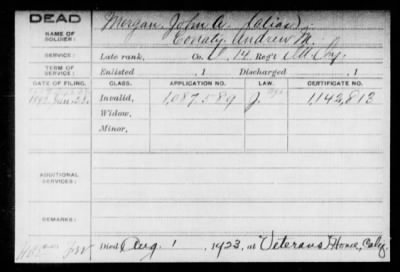 DEAD
NAME OF SOLDIER: Morgan, John A. (alias)
Conaty, Andrew M.
SERVICE: Late rank, Co. , 14 Reg't
TERM OF SERVICE: Enlisted , 1 Discharged , 1
DATE OF FILING. CLASS. APPLICATION NO. LAW. CERTIFICATE NO.
Invalid, 1,087,589 1,142,813
Widow,
Minor,
ADDITIONAL SERVICES:
REMARKS:
Died Aug. 1, 1923, at Veterans Home, Calif.